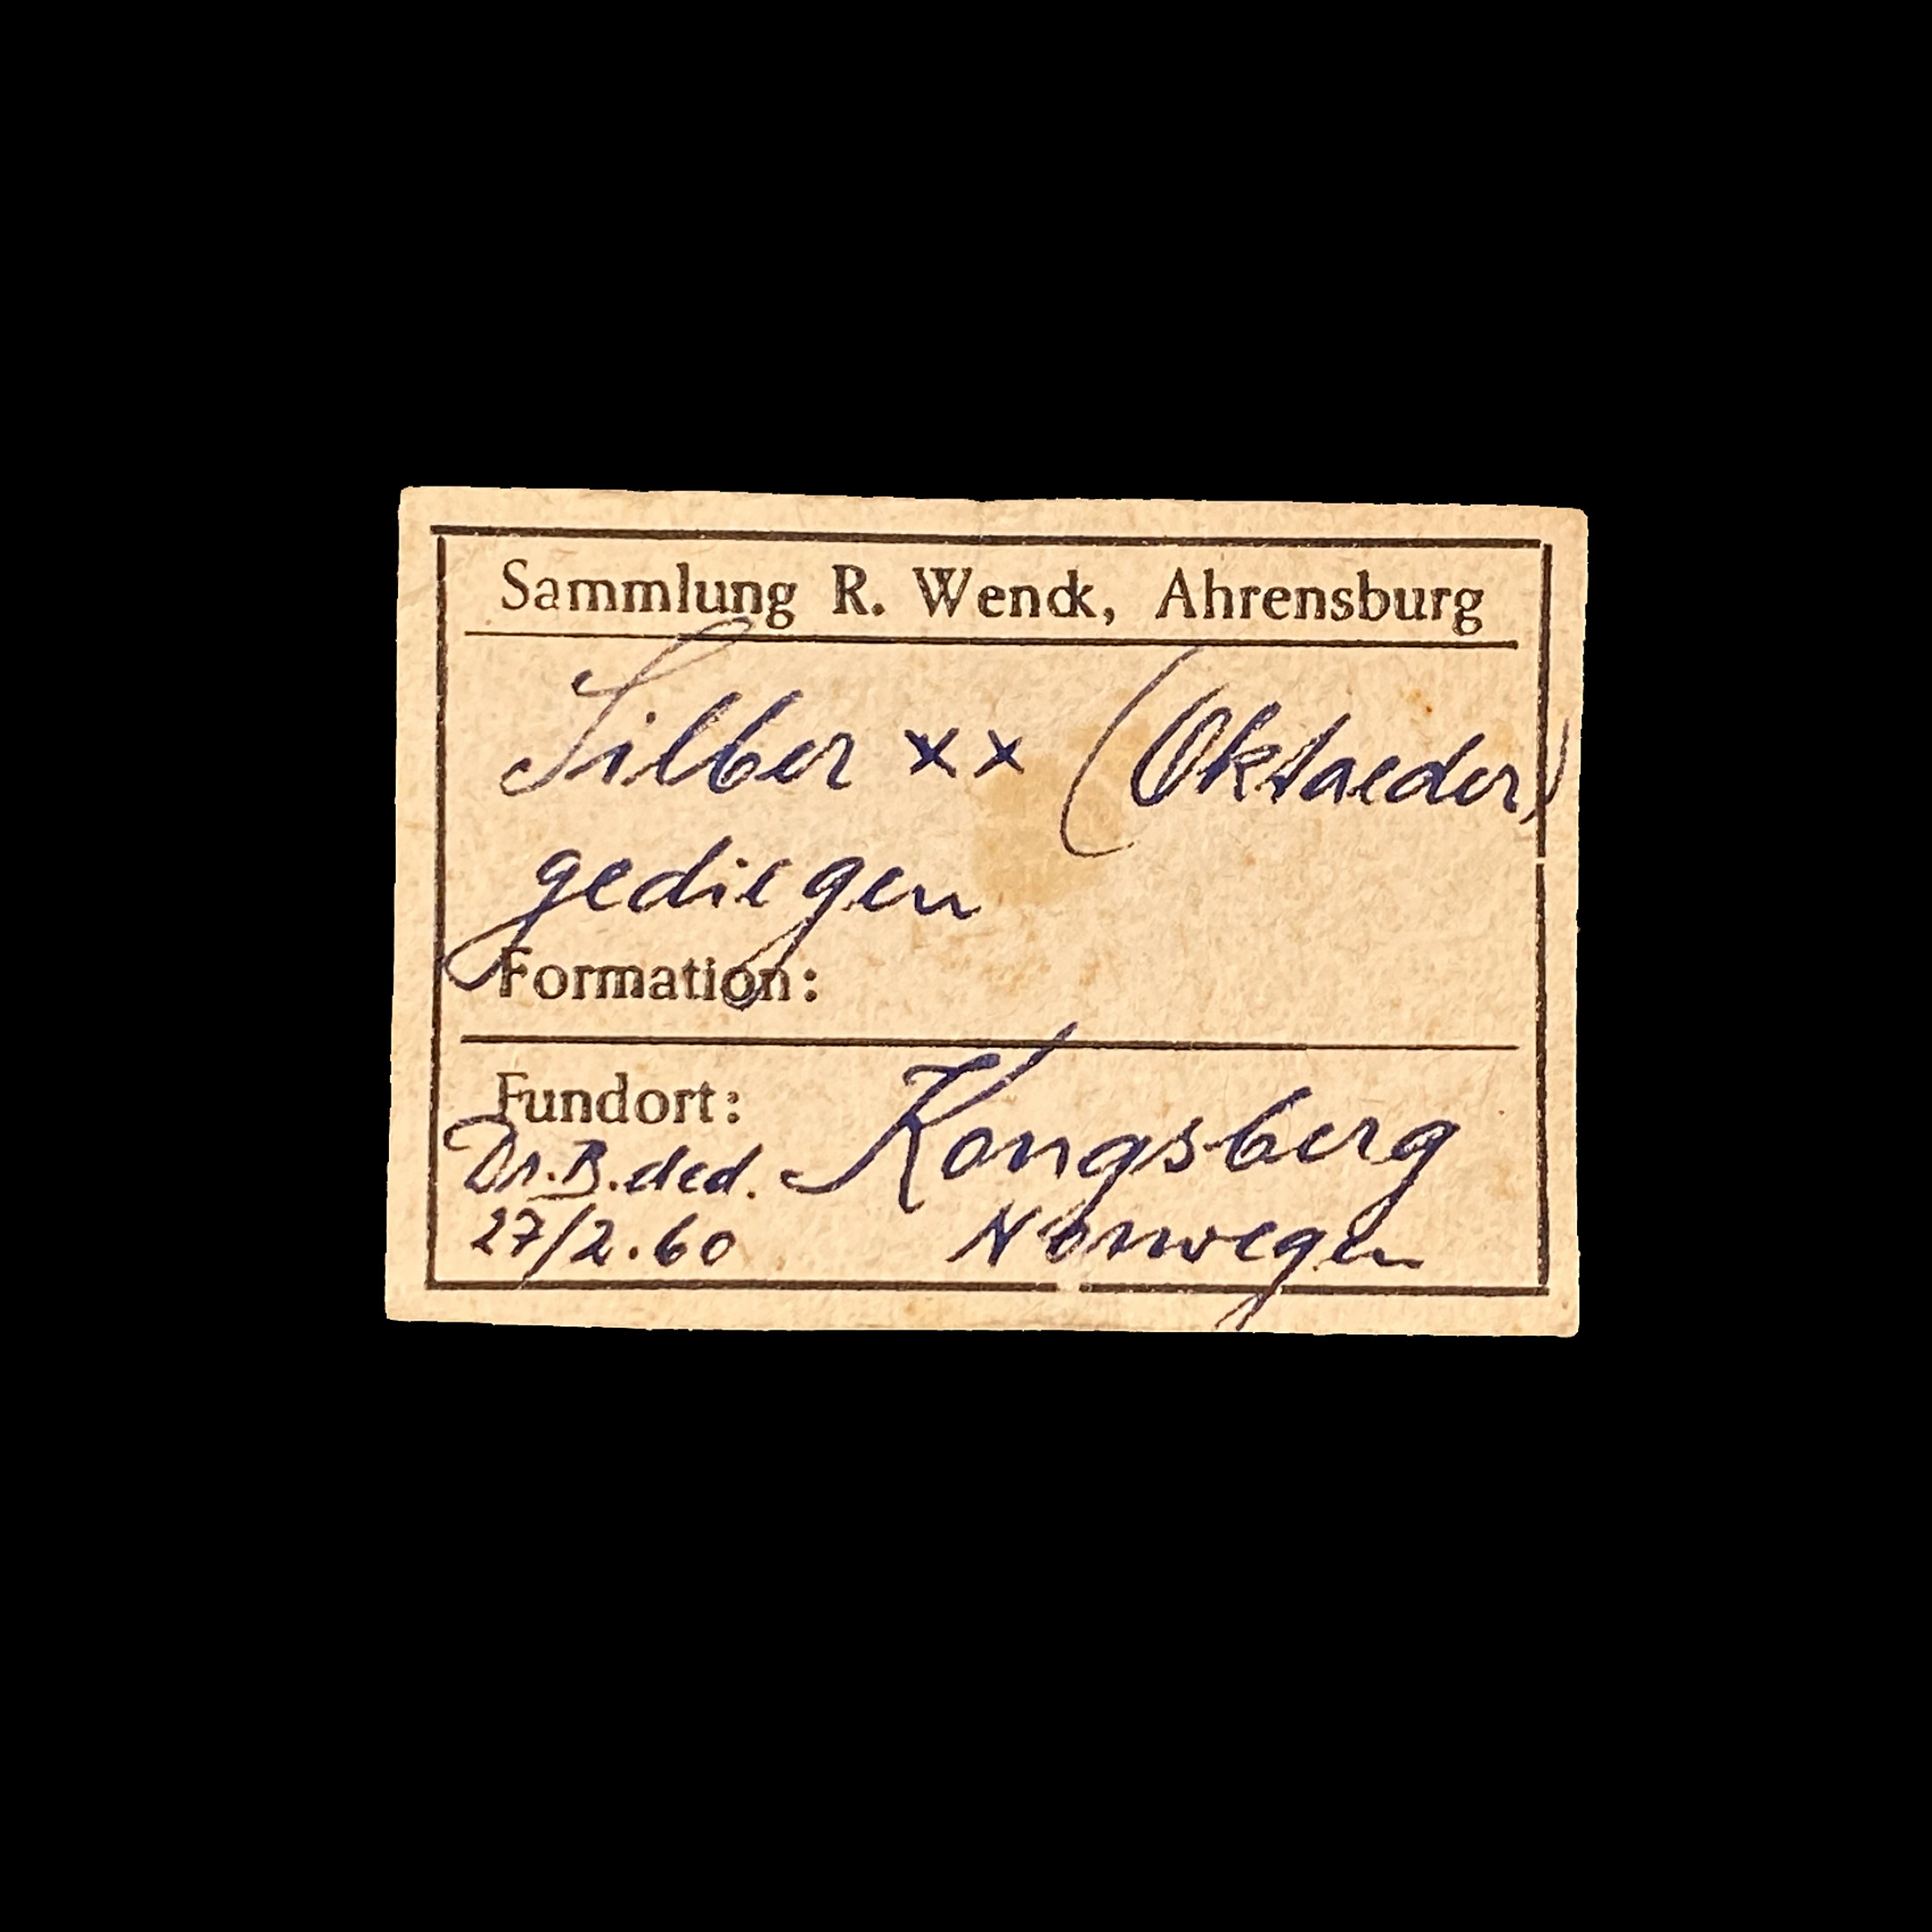 Sammlung R. Wenck, Ahrensburg
Silber xx (Oktaeder)
gediegen
Formation:
Fundort: Kongsberg
Dr. B. ded.
27/2.60 Norwegen